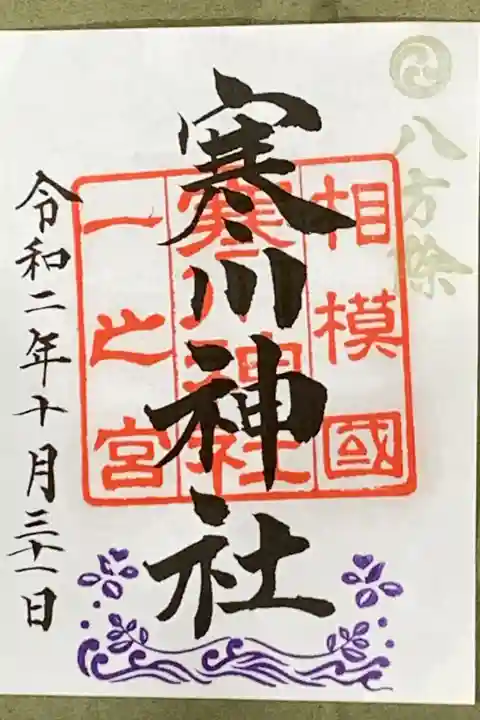 八方除
相模國
寒川神社
寒川神社
一之宮
令和二年十月三十一日